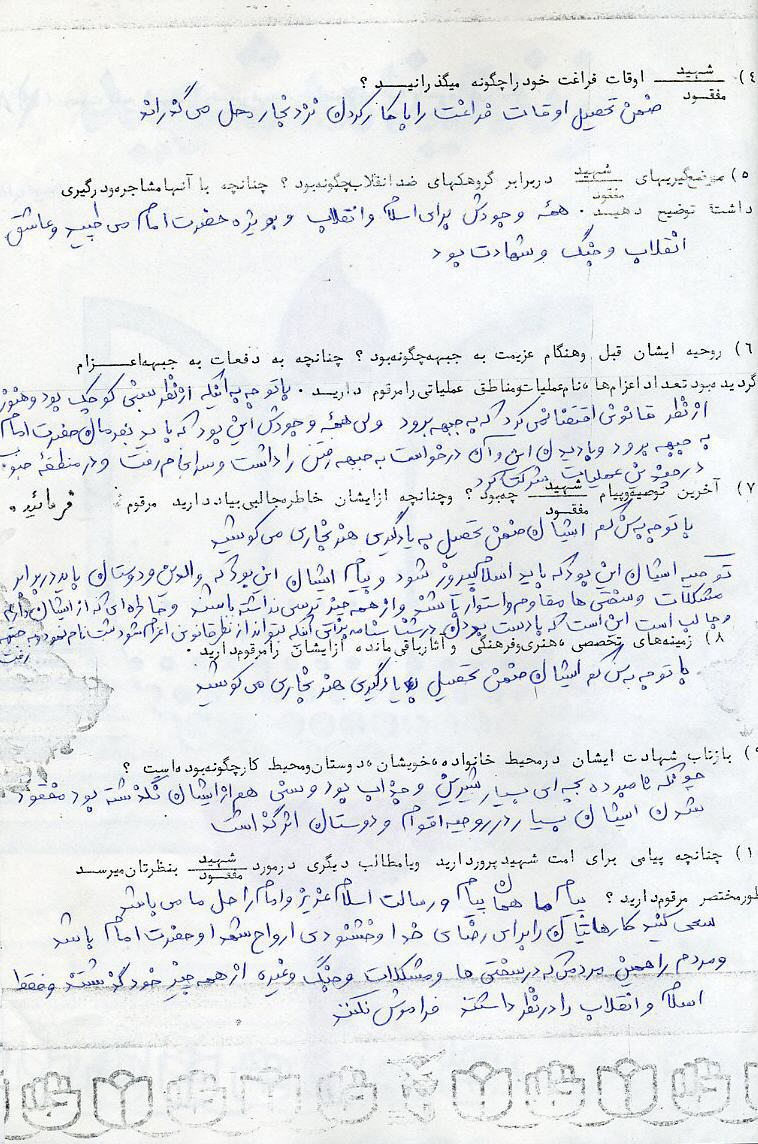 ٤) شهید / مفقود اوقات فراغت خود را چگونه میگذرانیـد ؟
ضمن تحصیل اوقات فراغت را با کار کردن نزد نجار محل می گذراند
٥) موضعگیریهای شهید / مفقود در برابر گروهکهای ضد انقلاب چگونه بود ؟ چنانچه با آنها مشاجره و درگیری
داشتهٔ توضیح دهیـد . همه وجودش برای اسلام و انقلاب و بویژه حضرت امام می طپید و عاشق
انقلاب و جنگ و شهادت بود
٦) روحیه ایشان قبل وهنگام عزیمت به جبهه چگونه بود ؟ چنانچه به دفعات به جبهه اعـزام
گردیده بود تعداد اعزام ها ، نام عملیات و مناطق عملیاتی را مرقوم داریـد . با توجه به اینکه از نظر سنی کوچک بود و هنوز
از نظر قانونی اقتضا نمی کرد که به جبهه برود ولی همه وجودش این بود که باید بفرمان حضرت امام
به جبهه برود و با دیدن این و آن درخواست به جبهه رفتن را داشت و سرانجام رفت و در منطقه جنوب
در عملیات شرکت کرد
٧) آخرین توصیه و پیام شهید / مفقود چه بود ؟ وچنانچه از ایشان خاطره جالبی بیاد دارید مرقوم فرمائید .
با توجه به ایشان ضمن تحصیل به یادگیری هنر نجاری می کوشید
توصیه ایشان این بود که باید اسلام پیروز شود و پیام ایشان این بود که والدین و دوستان باید در برابر
مشکلات و سختی ها مقاوم و استوار باشند و از همه چیز ترسی نداشته باشند و خاطره ای که از ایشان داریم
و جالب است این است که با دست بردن در شناسنامه برای آنکه بتواند از نظر قانونی اعزام شود ثبت نام نمود و به جبهه
رفت
٨) زمینه های تخصصی ، هنری وفرهنگی و آثار باقی مانده از ایشان را مرقوم دارید .
با توجه به ایشان ضمن تحصیل به یادگیری هنر نجاری می کوشید
) بازتاب شهادت ایشان در محیط خانواده ، خویشان ، دوستان و محیط کار چگونه بوده است ؟
چونکه نامبرده بچه ای بسیار شیرین و جذاب بود و سنی هم از ایشان نگذشته بود مفقود
شدن ایشان بسیار در روحیه اقوام و دوستان اثر گذاشت
١) چنانچه پیامی برای امت شهید پرور دارید ویا مطالب دیگری در مورد شهید / مفقود بنظرتان میرسـد
طور مختصر مرقوم دارید ؟ پیام ما همان پیام و رسالت اسلام عزیز و امام راحل ما می باشد
سعی کنید کارهایتان را برای رضای خدا و خشنودی ارواح شهدا و حضرت امام باشد
و مردم را همین مردمی که در سختی ها و مشکلات و جنگ وغیره از همه چیز خود گذشتند و فقط
اسلام و انقلاب را در نظر داشتند فراموش نکنند